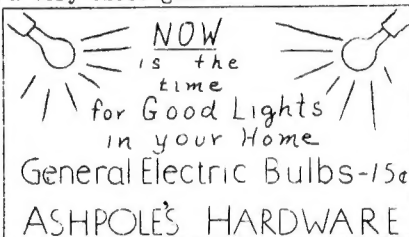 NOW
is the
time
for Good Lights
in your Home
General Electric Bulbs-15¢
ASHPOLE'S HARDWARE